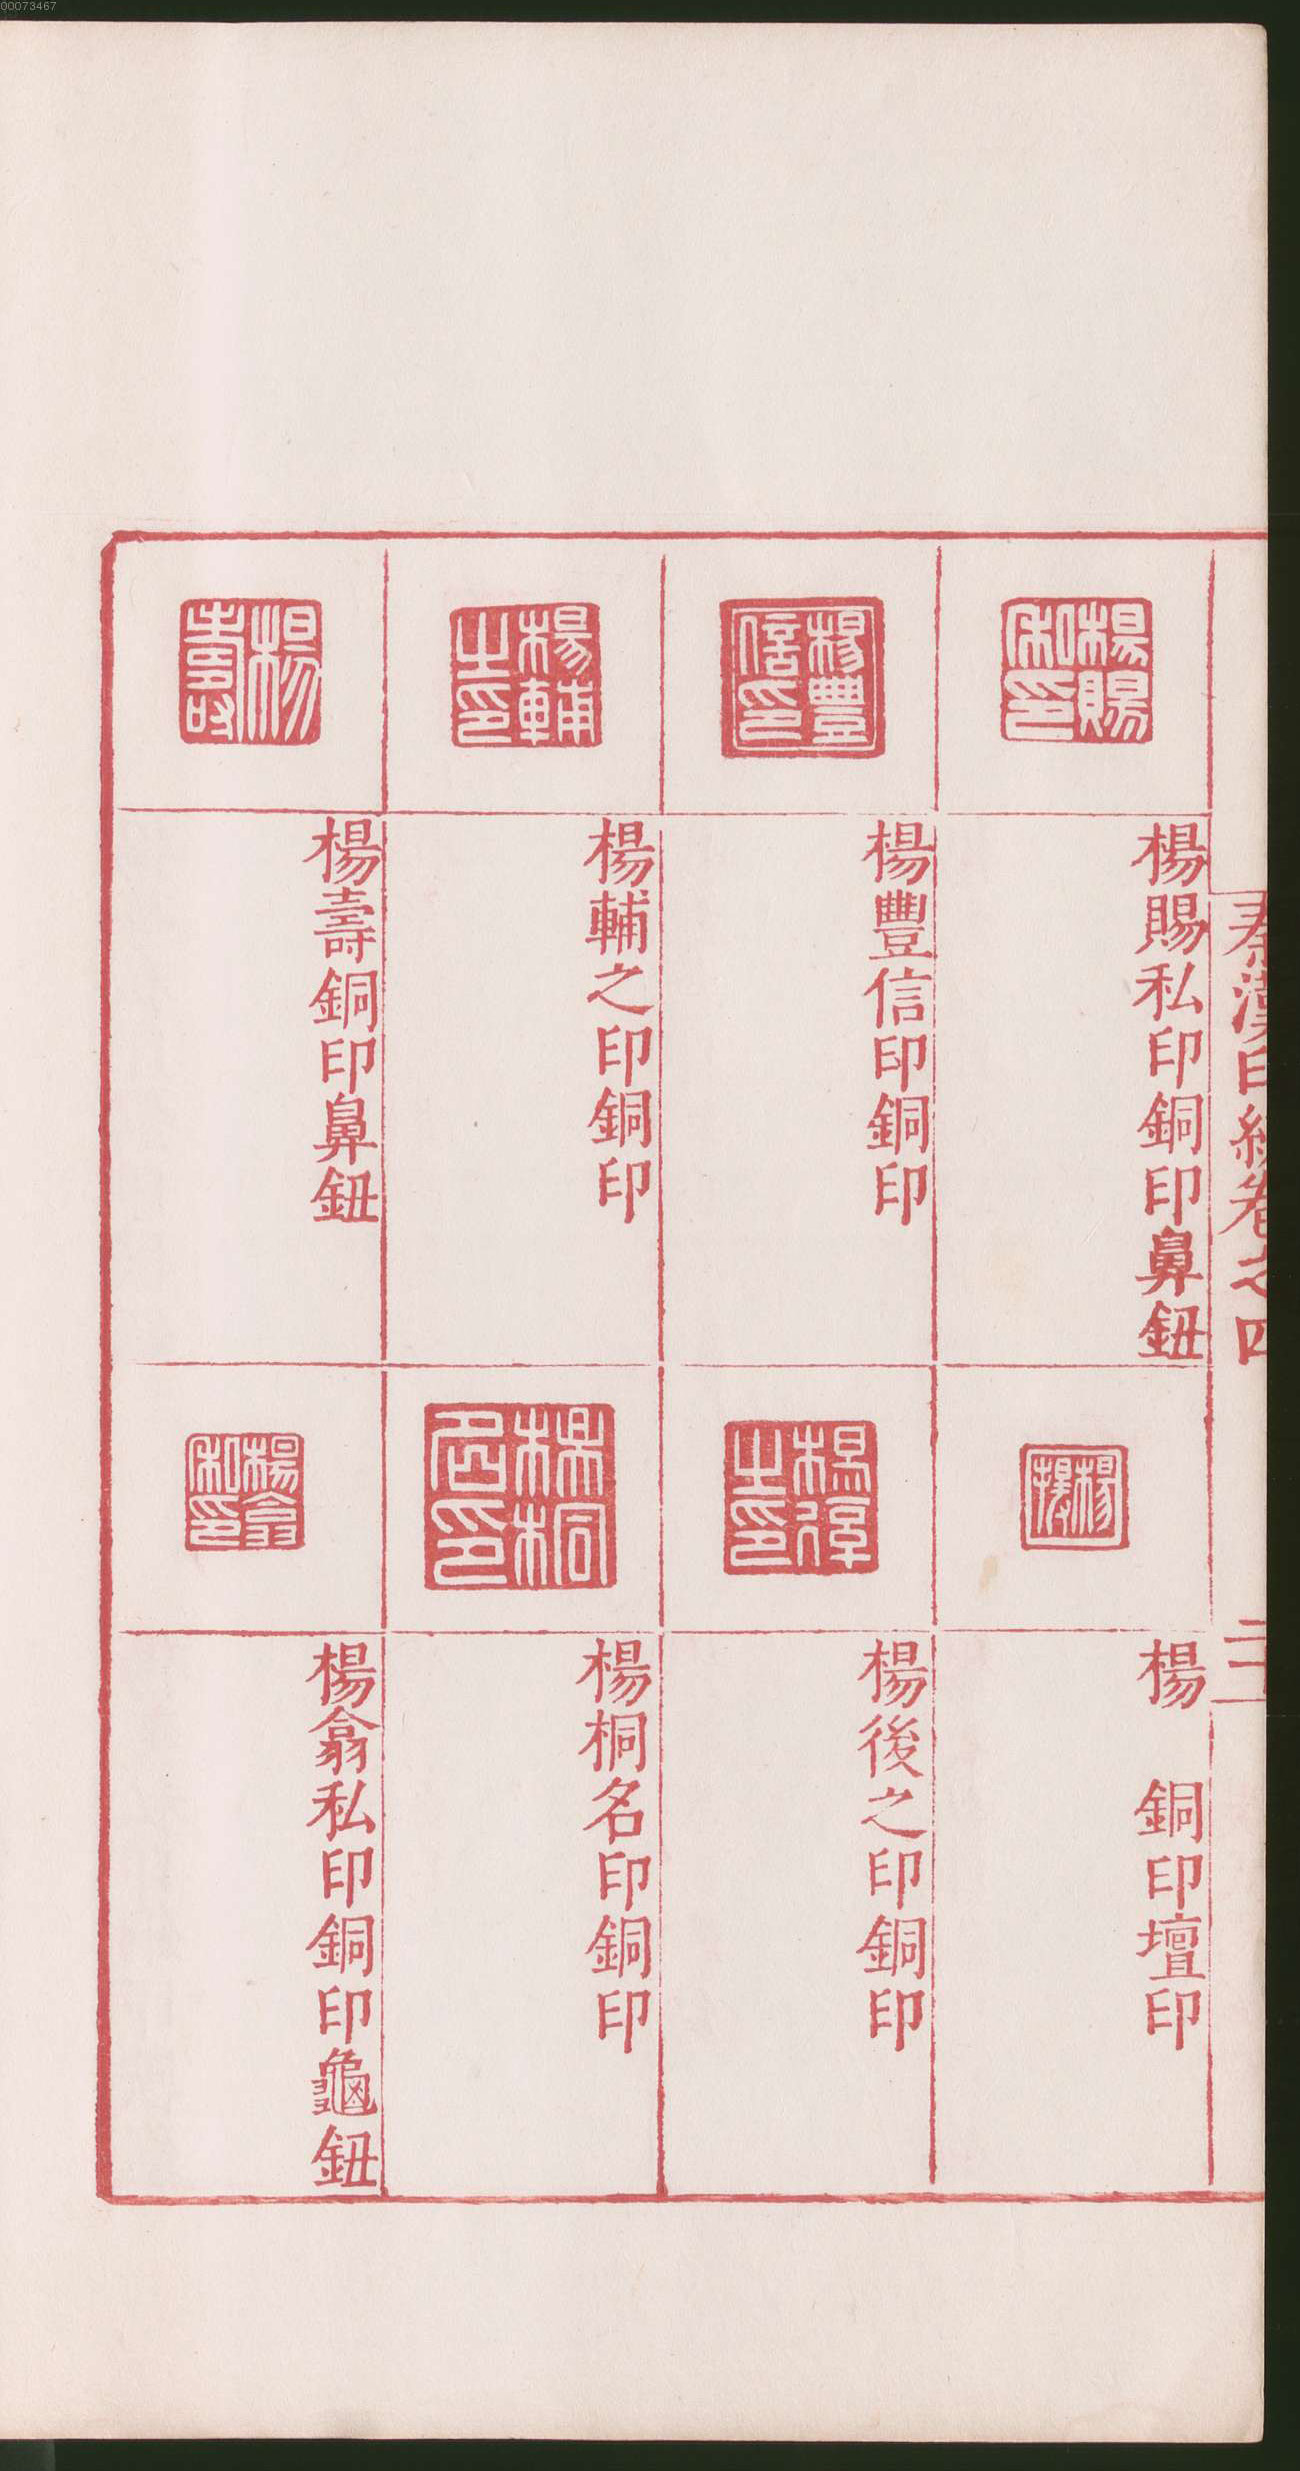 00073467
秦漢印統卷之四
二十
楊賜私印
楊賜私印銅印鼻鈕
楊豐信印
楊豐信印銅印
楊輔之印
楊輔之印銅印
楊壽
楊壽銅印鼻鈕
楊
楊 銅印壇印
楊後之印銅印
楊桐名印
楊桐名印銅印
楊翕私印
楊翕私印銅印龜鈕